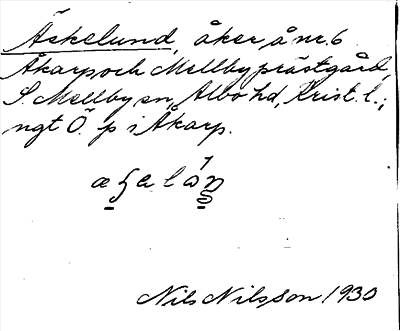 Äskelund, åker å nr. 6
Åkarp och Mellby prästgård,
S. Mellby sn, Albo hd, Krist. l.;
ngt Ö. p i Åkarp.
Nils Nilsson 1930